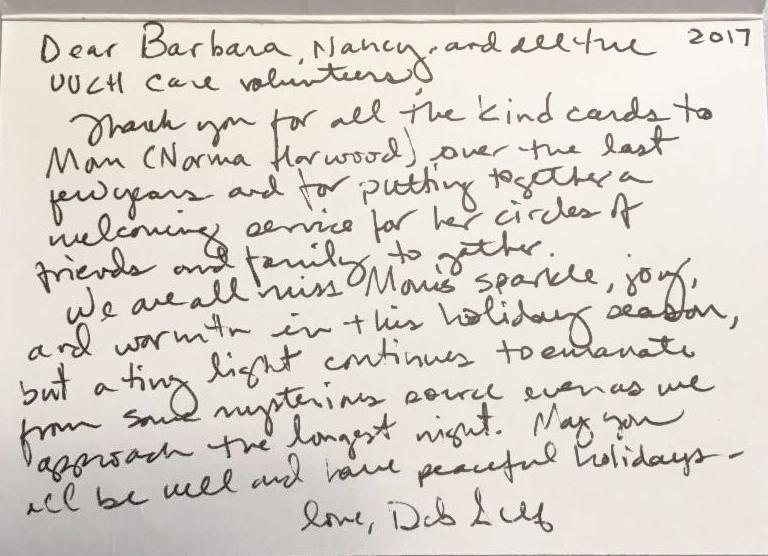 2017
Dear Barbara, Nancy, and all the
UUCH Care volunteers,
Thank you for all the kind cards to
Mom (Norma Harwood) over the last
few years and for putting together a
welcoming service for her circles of
friends and family to gather.
We are all miss Mom's sparkle, joy,
and warmth in this holiday season,
but a tiny light continues to emanate
from some mysterious source even as we
approach the longest night. May you
all be well and have peaceful holidays –
love, Deb